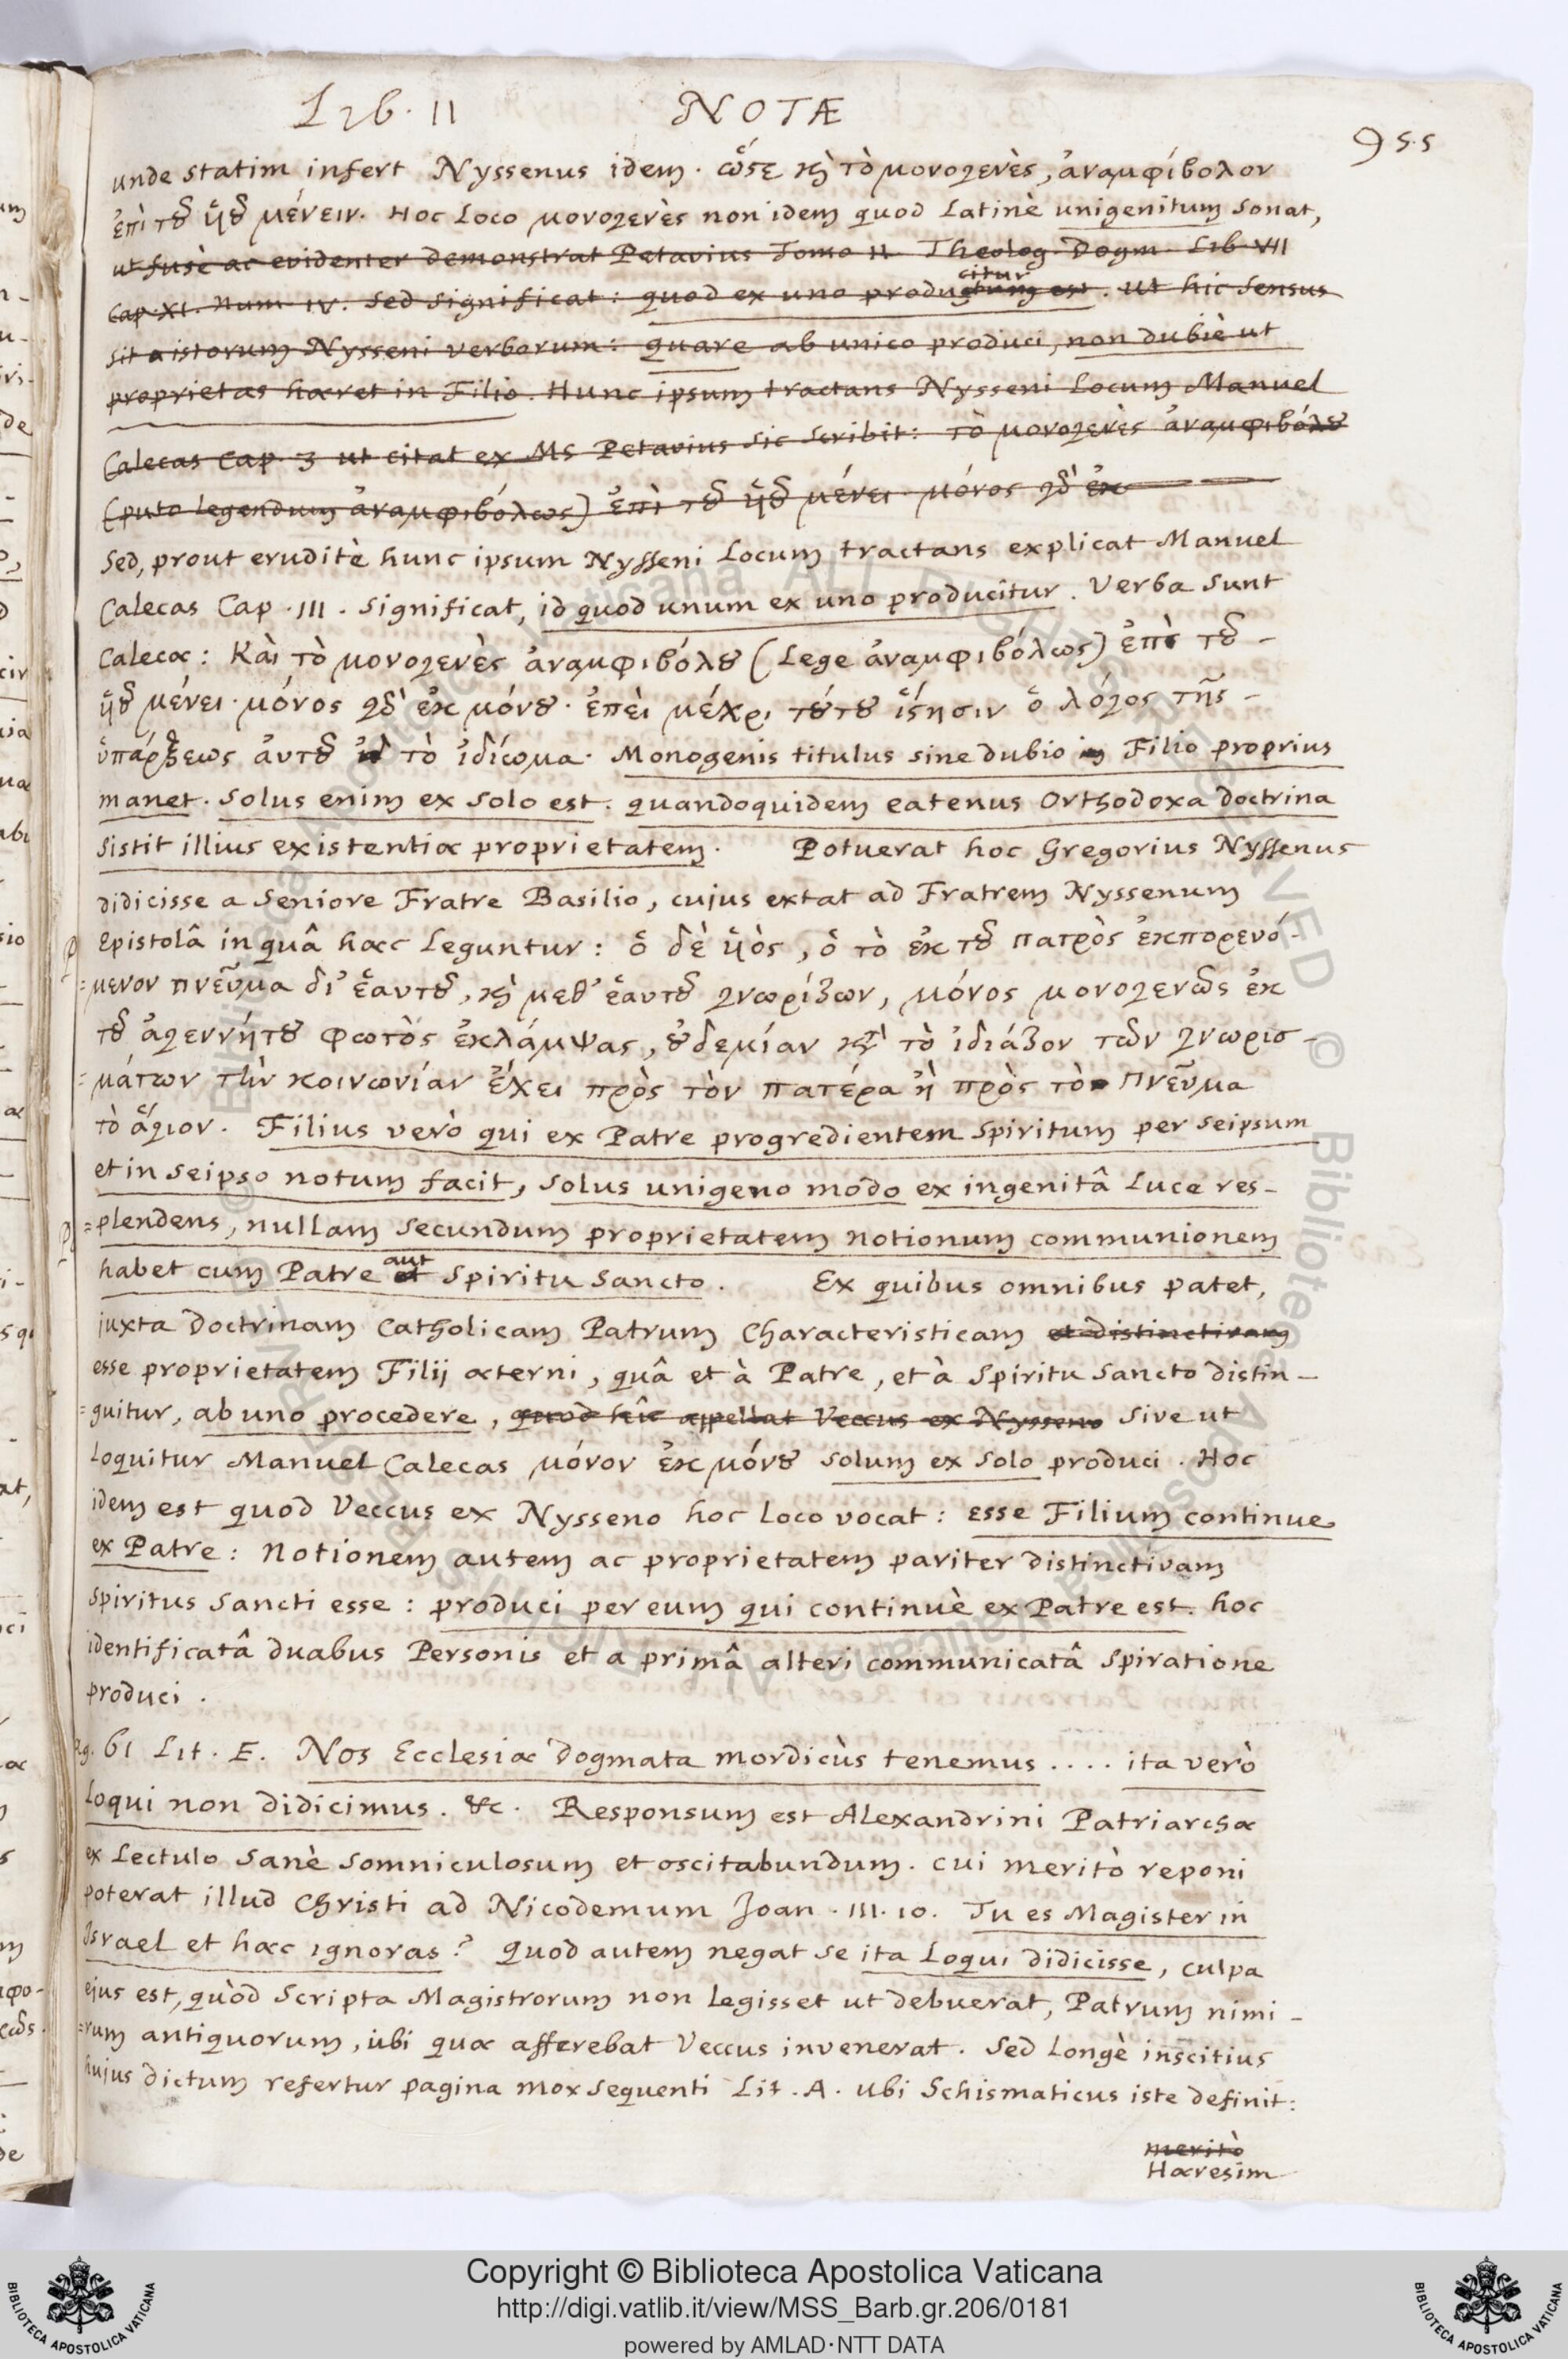 Lib. II NOTÆ
955
unde statim infert Nyssenus idem. ὥστε κὴ τὸ μονογενὲς, ἀναμφίβολον
ἐπὶ τȣ͂ ὑȣ͂ μένειν. Hoc Loco μονογενὲς non idem quod Latinè unigenitum sonat,
ut fusè ac evidenter demonstrat Petavius Tomo II Theolog Dogm Lib VII
citur
Cap. XI. Num IV. Sed significat: quod ex uno productum est. ut hic sensus
sit istorum Nysseni verborum: quare ab unico produci, non dubiè ut
proprietas hæret in Filio. Hunc ipsum tractans Nysseni Locum Manuel
Calecas Cap. 3 ut citat ex MS Petavius sic scribit: τὸ μονογενὲς ἀναμφιβόλȣ
(puto legendum ἀναμφιβόλως) ἐπὶ τȣ͂ ὑȣ͂ μένει. μόνος γδ̀ ἐκ
Sed, prout eruditè hunc ipsum Nysseni Locum tractans explicat Manuel
Calecas Cap. III. significat, id quod unum ex uno producitur. Verba sunt
Calecæ: Κὰι τὸ μονογενὲς ἀναμφιβόλȣ (Lege ἀναμφιβόλως) ἐπὶ τȣ͂ -
ὑȣ͂ μένει. μόνος γδ̀ ἐκ μόνȣ. ἐπεὶ μέχρι τȣ́τȣ ἵστησιν ὁ λόγος τῆς -
ὑπάρξεως ἀυτȣ͂ τὸ ἰδίωμα. Monogenis titulus sine dubio in Filio proprius
manet. Solus enim ex solo est. quandoquidem eatenus Orthodoxa doctrina
sistit illius existentiæ proprietatem. Potuerat hoc Gregorius Nyssenus
didicisse a Seniore Fratre Basilio, cujus extat ad Fratrem Nyssenum
Epistolâ in quâ hæc Leguntur: ὁ δὲ ὑὸς, ὁ τὸ ἐκ τȣ͂ πατρὸς ἐκπορευό-
=μενον πνεῦμα δι' ἑαυτȣ͂, κὴ μεθ' ἑαυτȣ͂ γνωρίζων, μόνος μονογενῶς ἐκ
τȣ͂ ἀγεννήτȣ φωτὸς ἐκλάμψας, ȣ̓δεμίαν κτ̀ τὸ ἰδιάζον τῶν γνωρισ-
=μάτων τὴν κοινωνίαν ἔχει πρὸς τὸν πατέρα ἢ πρὸς τὸ πνεῦμα
τὸ ἅγιον. Filius verò qui ex Patre progredientem Spiritum per seipsum
et in seipso notum facit, solus unigeno modo ex ingenitâ Luce res-
=plendens, nullam secundum proprietatem notionum communionem
aut
habet cum Patre et Spiritu Sancto. Ex quibus omnibus patet,
juxta doctrinam Catholicam Patrum Characteristicam et distinctivam
esse proprietatem Filij æterni, quâ et à Patre, et à Spiritu Sancto distin-
=guitur, ab uno procedere, quod hîc appellat Veccus ex Nysseno sive ut
Loquitur Manuel Calecas μόνον ἐκ μόνȣ solum ex solo produci. Hoc
idem est quod Veccus ex Nysseno hoc Loco vocat: esse Filium continue
ex Patre: Notionem autem ac proprietatem pariter distinctivam
Spiritus Sancti esse: produci per eum qui continuè ex Patre est. hoc
identificatâ duabus Personis et a primâ alteri communicatâ spiratione
produci.
Pag. 61 Lit. E. Nos Ecclesiæ dogmata mordicùs tenemus .... ita verò
Loqui non didicimus. &c. Responsum est Alexandrini Patriarchæ
ex Lectulo sanè somniculosum et oscitabundum. cui meritò reponi
poterat illud Christi ad Nicodemum Joan. III. 10. Tu es Magister in
Israel et hæc ignoras? Quod autem negat se ita Loqui didicisse, culpa
ejus est, quòd Scripta Magistrorum non legisset ut debuerat, Patrum nimi-
=rum antiquorum, ubi quæ afferebat Veccus invenerat. Sed Longè inscitius
hujus dictum refertur pagina mox sequenti Lit. A. ubi Schismaticus iste definit:
meritò
Hæresim
Copyright © Biblioteca Apostolica Vaticana
http://digi.vatlib.it/view/MSS_Barb.gr.206/0181
powered by AMLAD·NTT DATA